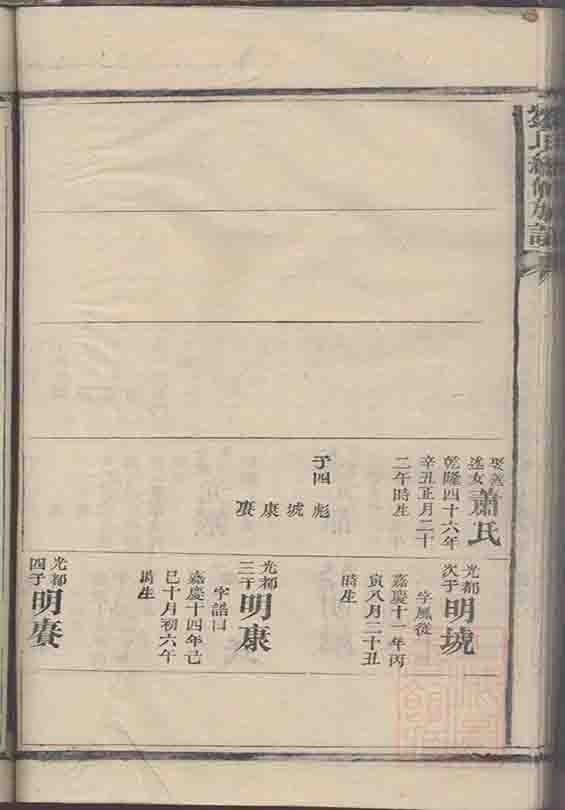 氏續修族譜
娶
女
蕭氏
乾隆四十六年
辛丑正月二十
二午時生
子四
彪
琥
康
賡
光都
次子
明琥
字風從
嘉慶十一年丙
寅八月二十丑
時生
光都
三子
明康
字謠曰
嘉慶十四年己
巳十月初六午
時生
光都
四子
明賡